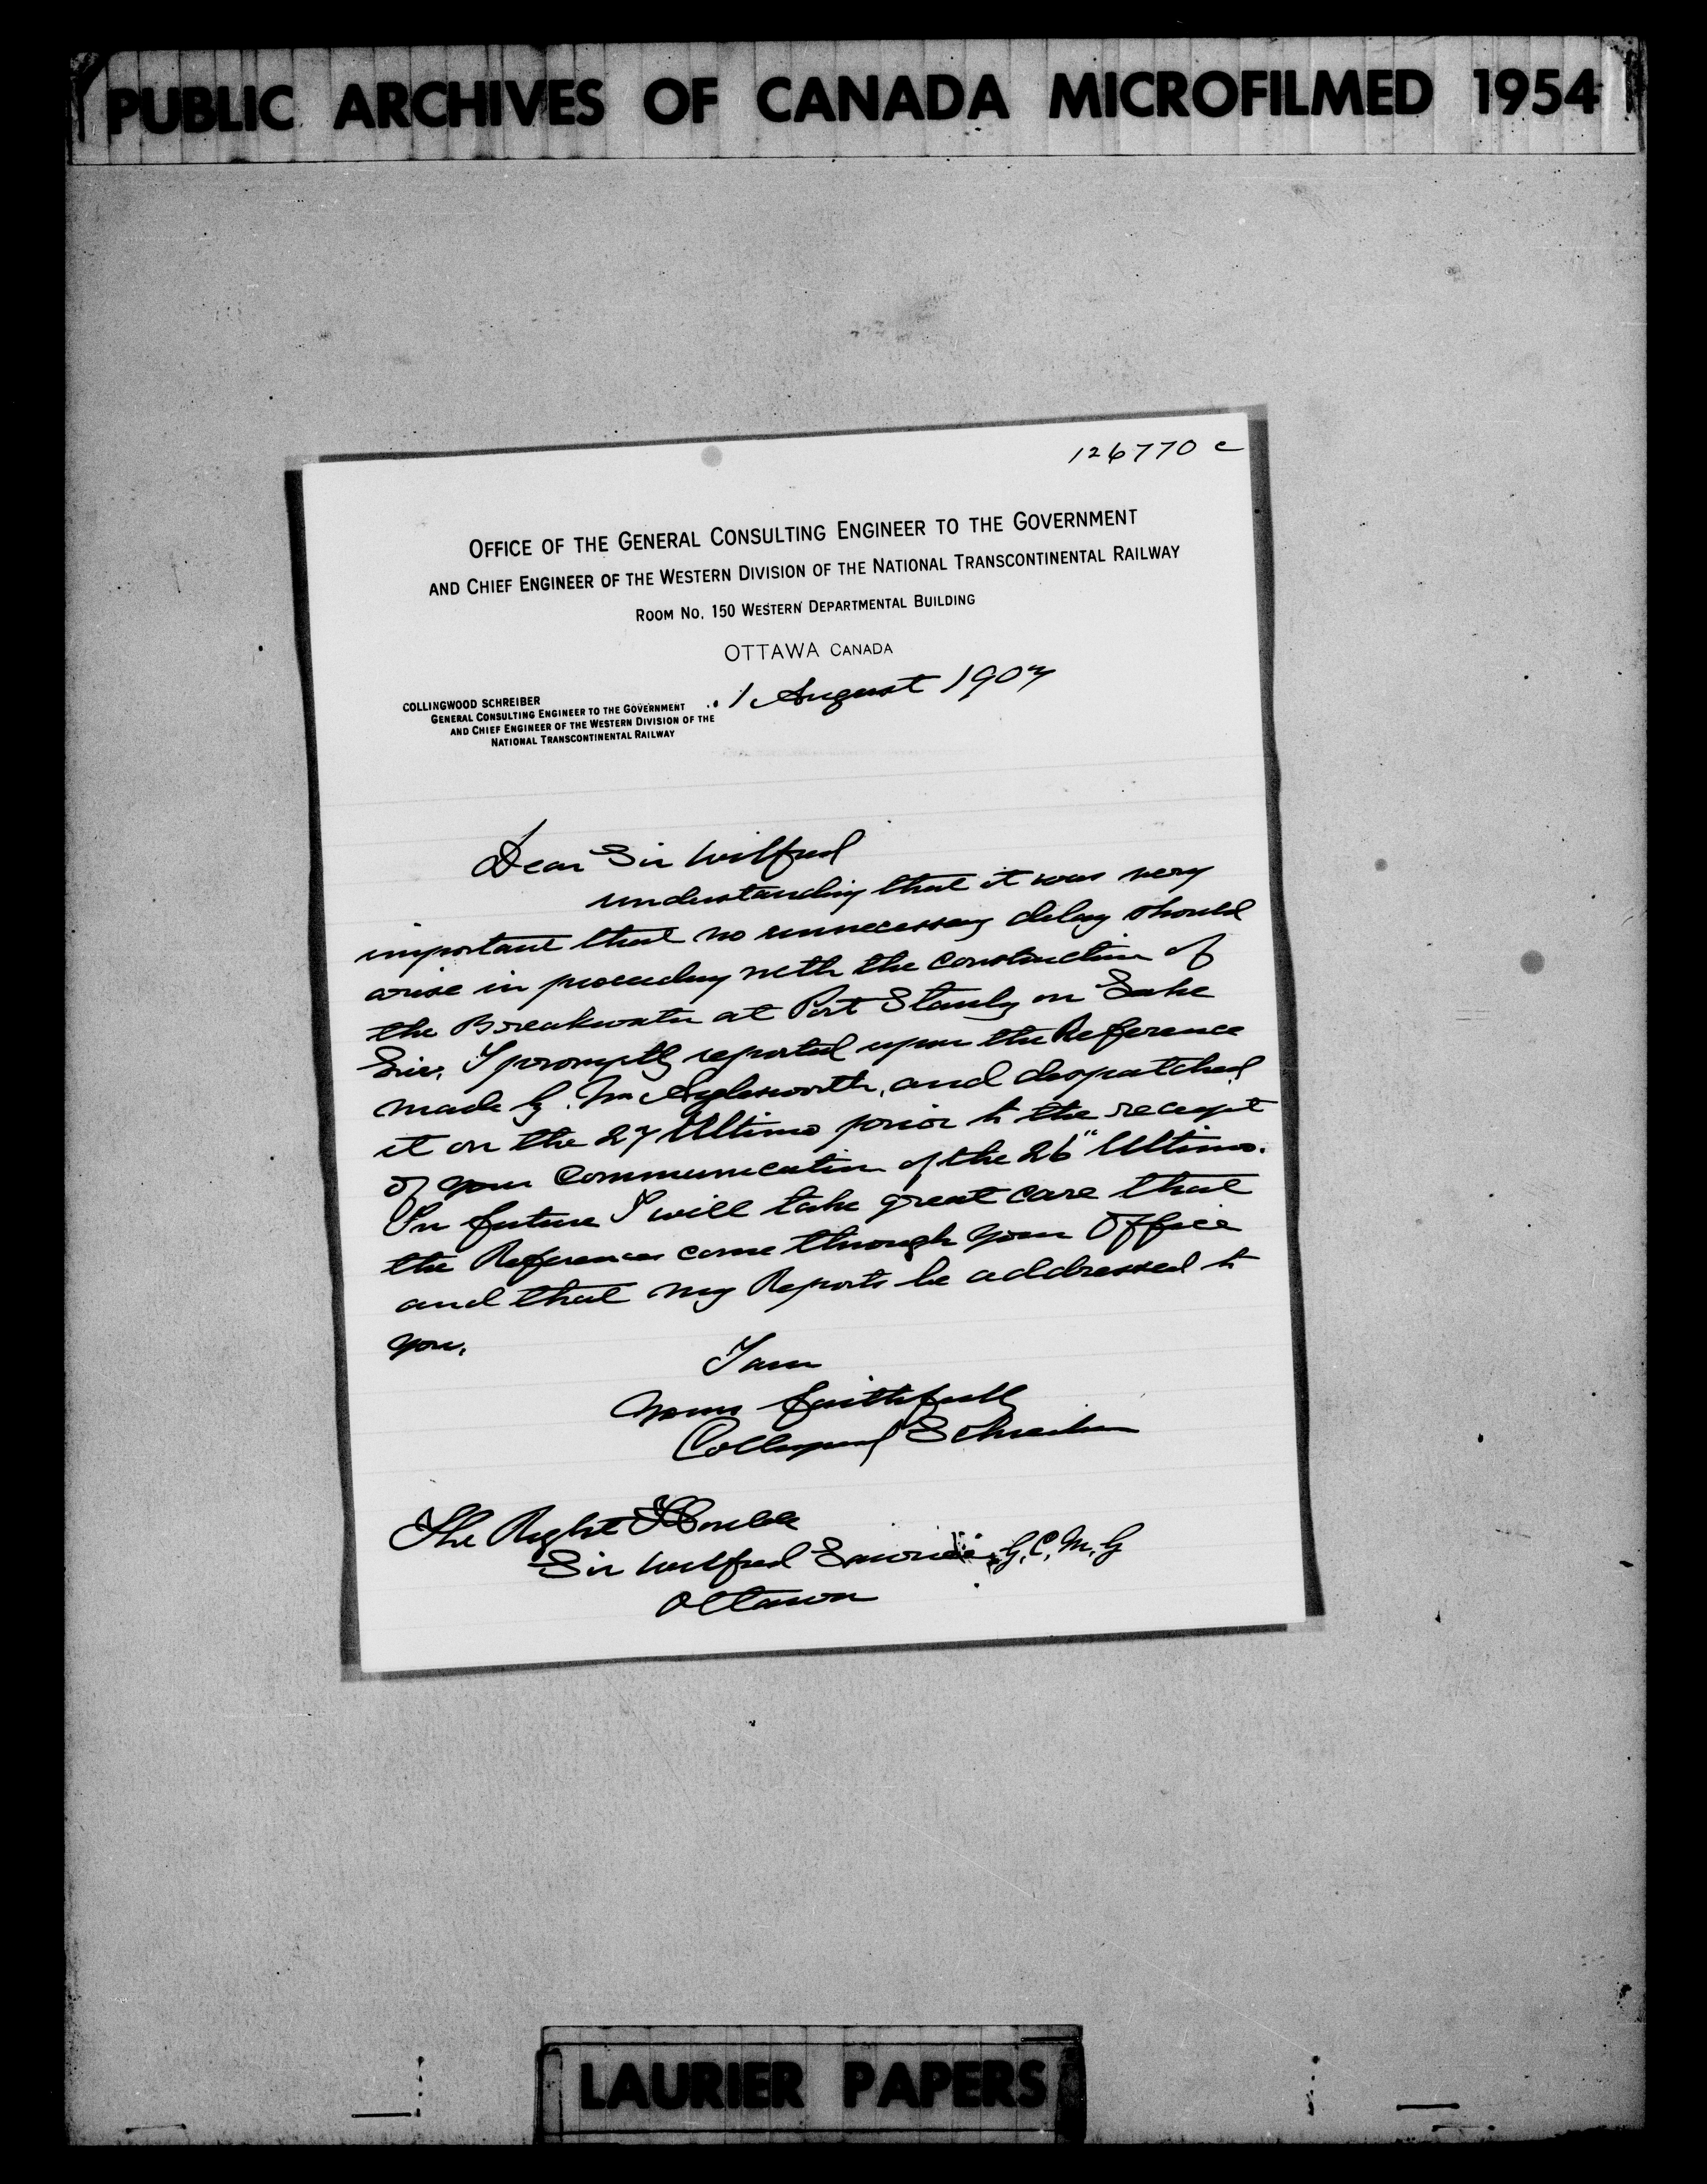 PUBLIC ARCHIVES OF CANADA MICROFILMED 1954
126770 c
OFFICE OF THE GENERAL CONSULTING ENGINEER TO THE GOVERNMENT
AND CHIEF ENGINEER OF THE WESTERN DIVISION OF THE NATIONAL TRANSCONTINENTAL RAILWAY
ROOM No. 150 WESTERN DEPARTMENTAL BUILDING
OTTAWA CANADA
1 August 1907
COLLINGWOOD SCHREIBER
GENERAL CONSULTING ENGINEER TO THE GOVERNMENT
AND CHIEF ENGINEER OF THE WESTERN DIVISION OF THE
NATIONAL TRANSCONTINENTAL RAILWAY
Dear Sir Wilfred
understanding that it was very
important that no unnecessary delay should
arise in proceeding with the construction of
the Breakwater at Port Stanly on Lake
Erie, I promptly reported upon the Reference
made by Mr Aylesworth, and despatched
it on the 27 Ultimo prior to the receipt
of your communication of the 26" Ultimo.
In future I will take great care that
the References come through your Office
and that my Reports be addressed to
you.
I am
Yours faithfully
Collingwood Schreiber
The Right Honble
Sir Wilfred Laurier G.C.M.G
Ottawa
LAURIER PAPERS